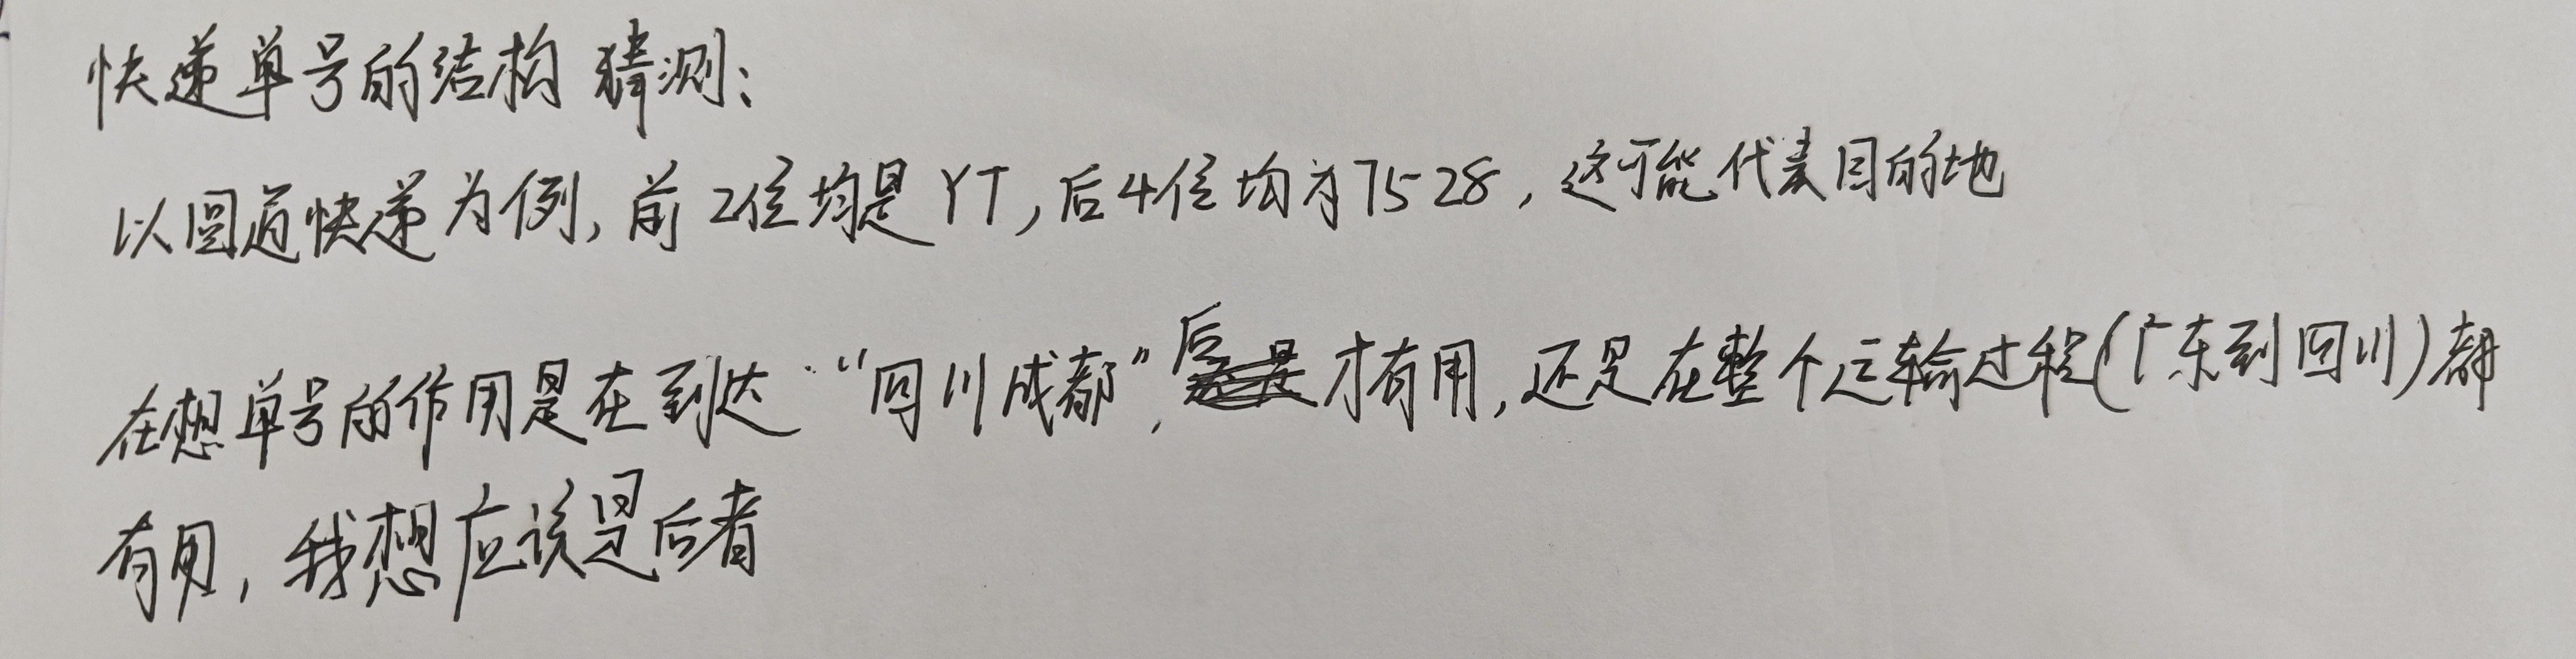 快递单号的结构 猜测：
以圆通快递为例, 前2位均是YT, 后4位均为7528, 这可能代表目的地
在想单号的作用是在到达“四川成都”, 后才有用, 还是在整个运输过程(广东到四川)都
有用, 我想应该是后者